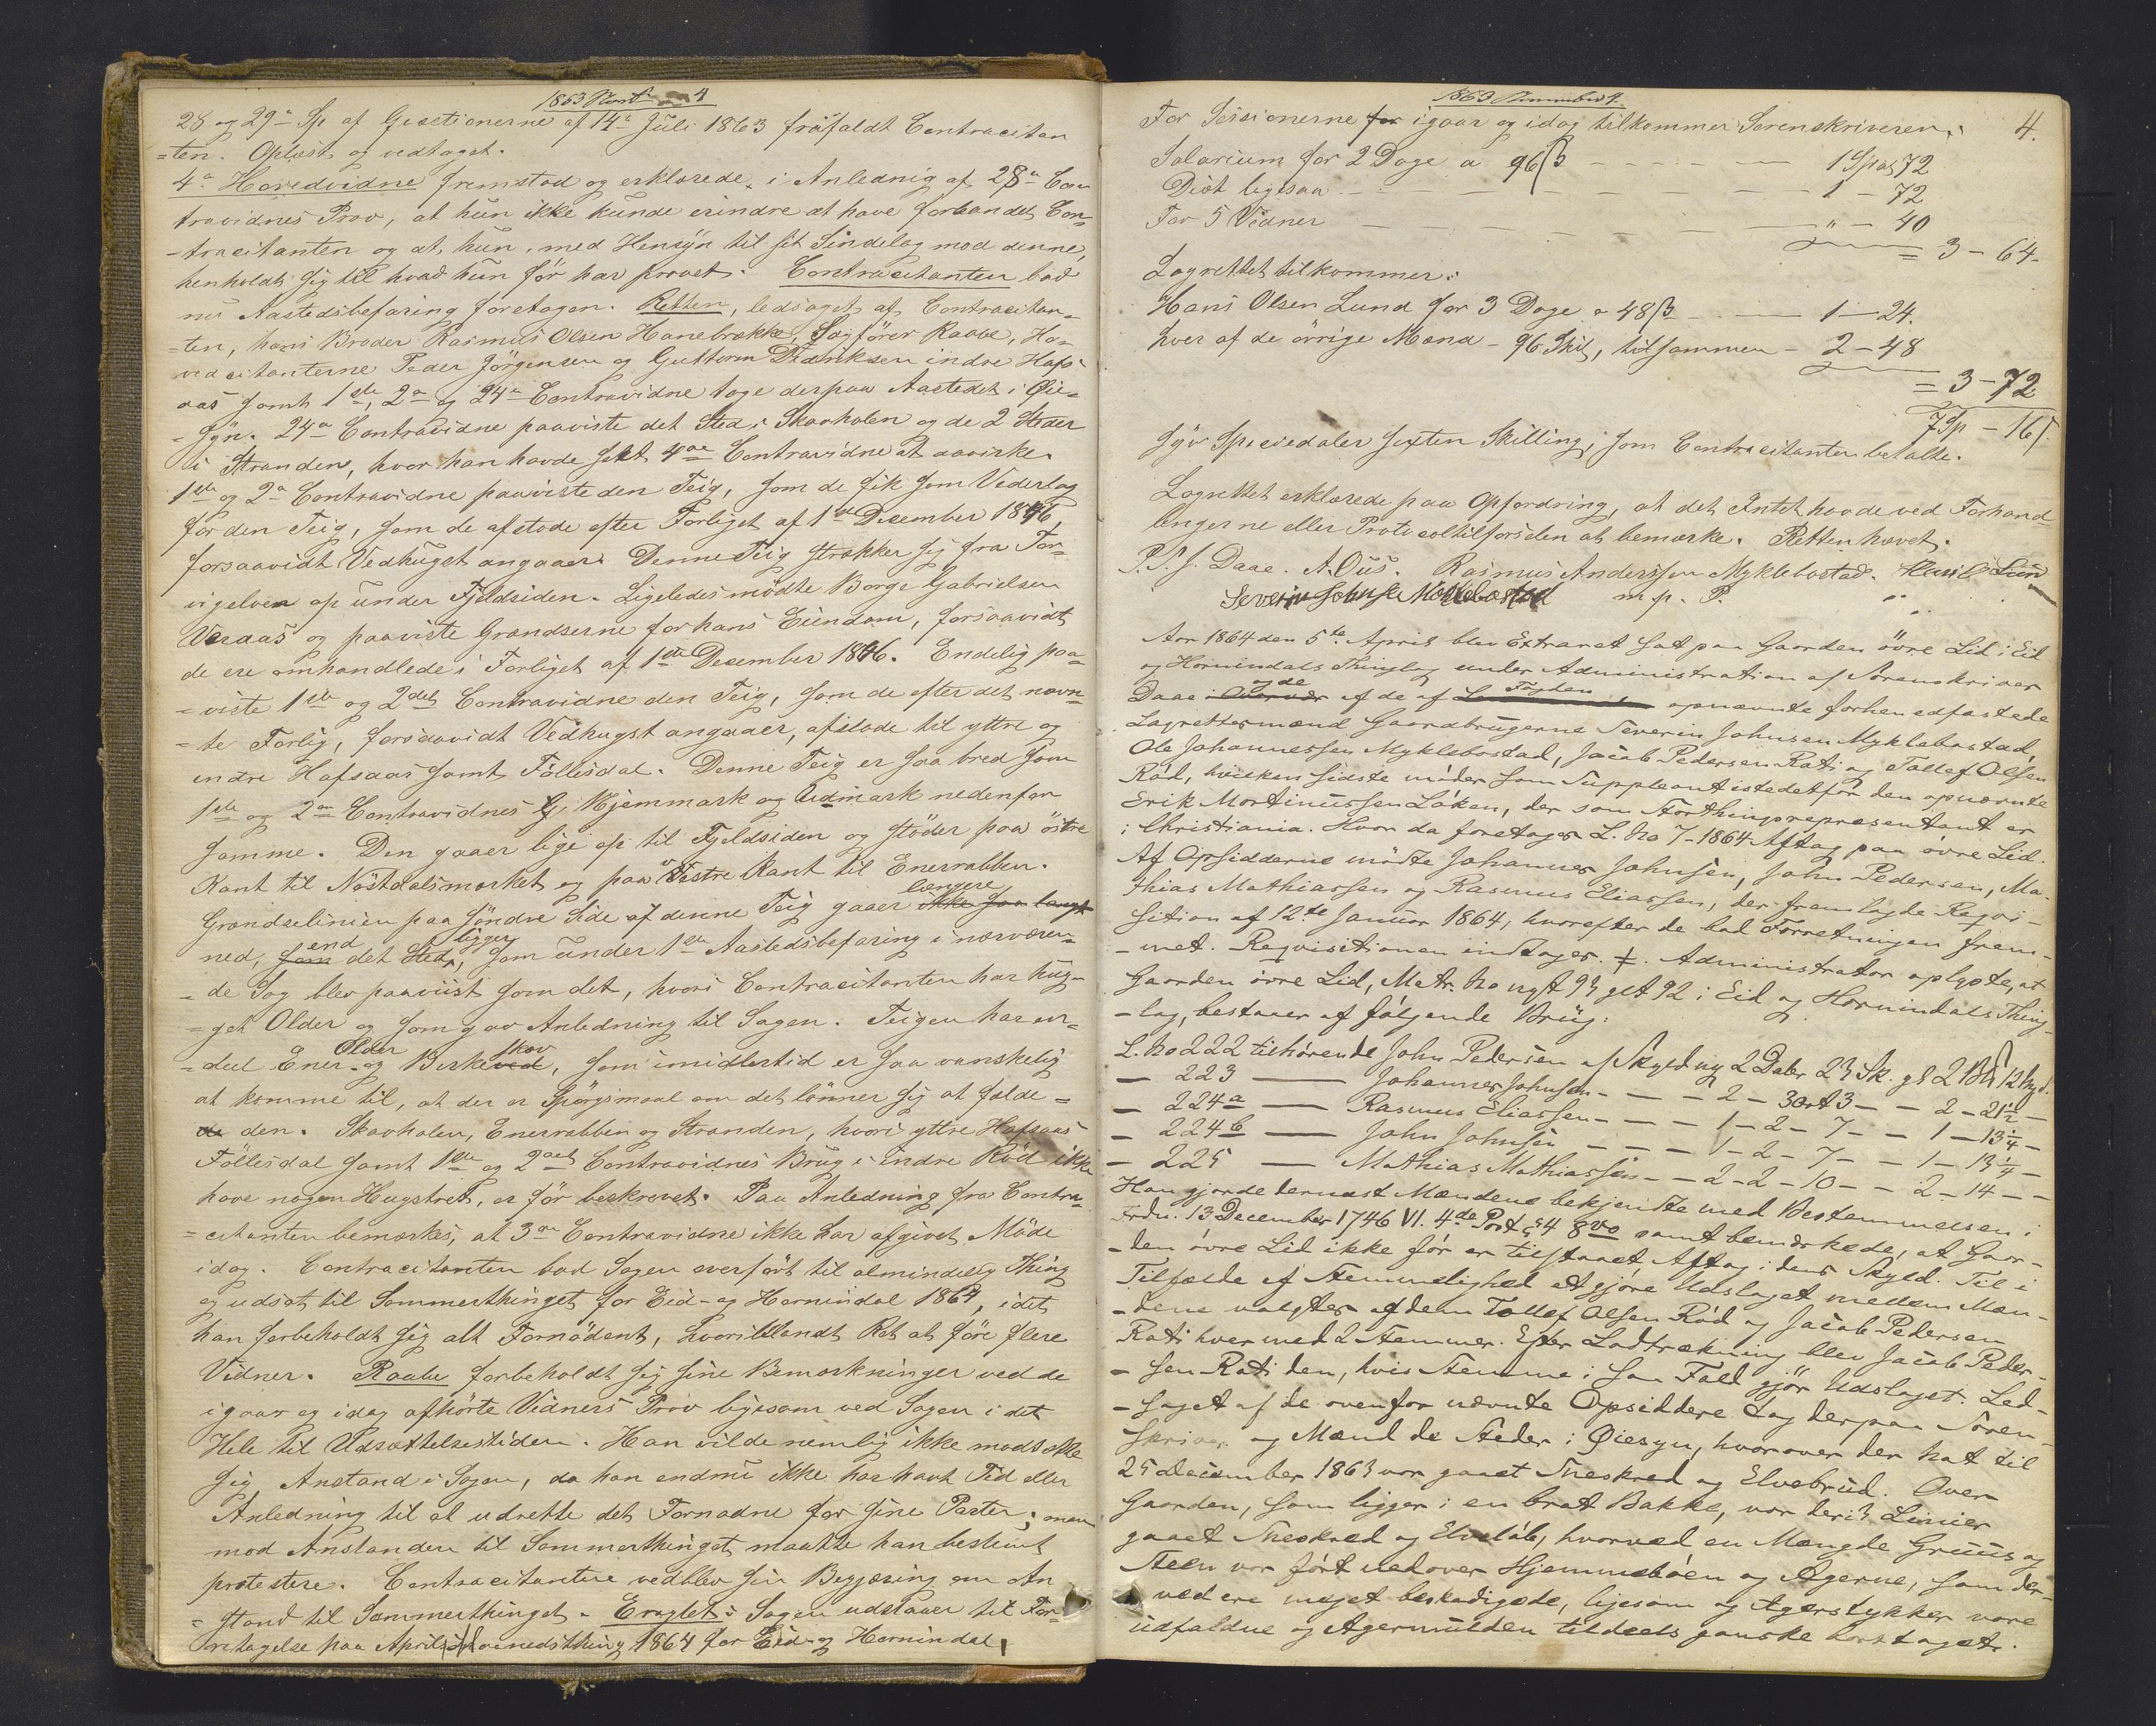 1863 Novbr 4
28 og 29de Sp af Qvæstionerne af 14de Juli 1863 frafaldt Contracitan
=ten. Oplæst og vedtaget.
4de Hovedvidne fremstod og erklærede, i Anledning af 28de Con
travidnes Prov, at hun ikke kunde erindre at have forbandet Con=
-tracitanten og at hun, med Hensyn til sit Sindelag mod denne,
henholdt sig til hvad hun før har provet. Contracitanten bad
nu Aastedsbefaring foretagen. Retten, ledsaget af Contracitan=
=ten, hans Broder Rasmus Olsen Hanebrække, Sagfører Raabe, Ho=
vedcitanterne Peder Jørgensen og Guttorm Danksen indre Hafs=
aas samt 1ste, 2de og 24de Contravidne toge derpaa Aastedet i Øie=
=syn. 24de Contravidne paaviste det Sted i Skarholen og de 2 Steder
i Stranden, hvor han havde seet 4de Contravidne at aavirke.
1ste og 2de Contravidne paaviste den Teig, som de fik som Vederlag
for den Teig, som de afstode efter Forliget af 1ste December 1846,
forsaavidt Vedhuget angaaer. Denne Teig strækker sig fra Tor=
vigelven op under Fjeldsiden. Ligeledes mødte Borge Gabrielsen
Veraas og paaviste Grændserne for hans Eiendom, forsaavidt
de ere omhandlede i Forliget af 1ste December 1846. Endelig paa=
=viste 1ste og 2det Contravidne den Teig, som de efter det nævn=
=te Forlig, forsaavidt Vedhugst angaaer, afstode til yttre og
indre Hafsaas samt Føllesdal. Denne Teig er saa bred som
1ste og 2den Contravidnes Hjemmark og Udmark nedenfor
samme. Den gaaer lige op til Fjeldsiden og støder paa østre
Kant til Nøstdalsmærket og paa Vestre Kant til Enerrabben.
længere
Grændselinien paa søndre Side af denne Teig gaaer ikke saa langt
end ligger
ned, som det Sted, som under 1ste Aastedsbefaring i nærværen=
=de Sag blev paaviist som det, hvori Contracitanten har hug=
=get Older og som gav Anledning til Sagen. Teigen har en=
Older skov
=deel Ener- og Birkeved, som imidlertid er saa vanskelig
at komme til, at der er Spørgsmaal om det lønner sig at fælde=
de den. Skarholen, Enerrabben og Stranden, hvori yttre Hafsaas
Føllesdal samt 1ste og 2det Contravidnes Brug i indre Rød ikke
have nogen Hugstret, er før beskrevet. Paa Anledning fra Contra=
=citanten bemærkes, at 3de Contravidne ikke har afgivet Møde
idag. Contracitanten bad Sagen overført til almindelig Thing
og udsat til Sommerthinget for Eid- og Hornindal 1864, idet
han forbeholdt sig alt Fornødent, hvoriblandt Ret at føre flere
Vidner. Raabe forbeholdt sig sine Bemærkninger ved de
igaar og idag afhørte Vidners Prov ligesom ved Sagen i det
Hele til Udsættelsestiden. Han vilde nemlig ikke modsætte
sig Anstand i Sagen, da han endnu ikke har havt Tid eller
Anledning til at udrette det Fornødne for sine Parter; men
mod Anstanden til Sommerthinget maatte han bestemt
protestere. Contracitanten vedblev sin Begjæring om An
=stand til Sommerthinget. Eragtet: Sagen udstaaer til For=
retagelse paa April Maanedsthing 1864 for Eid- og Hornindal.
1863 November 4.
4.
For Sessionerne for igaar og idag tilkommer Sorenskriveren:
Salarium for 2 Dage a 96 ß - - - 1 Spd 72
Diæt ligesaa - - - 1 - 72
For 5 Vidner - - - " - 40
= 3 - 64.
Lagrettet tilkommer:
Hans Olsen Lund for 3 Dage a 48 ß - - - 1 - 24.
hver af de øvrige Mænd - 96 Skil, tilsammen - 2 - 48
= 3 - 72
7 Sp - 16ß.
Syv Speciedaler sexten Skilling, som Contracitanten betalte.
Lagrettet erklærede paa Opfordring, at det Intet havde ved Forhand
lingerne eller Protocoltilførselen at bemærke. Retten hævet.
P. P. S. Daae. A. Ous. Rasmus Anderssen Myklebostad. Hans Lund
Severin Johnsen Myklebostad m. p. P.
Aar 1864 den 5te April blev Extraret sat paa Gaarden øvre Lid i Eid
og Hornindals Thinglag under Administration af Sorenskriver
og de Fogden
Daae af de af opnævnte forhen edfæstede
Lagrettesmænd Gaardbrugerne Severin Johnsen Myklebostad,
Ole Johannessen Myklebostad, Jacob Pedersen Rati og Tollef Olsen
Rød, hvilken sidste møder som Suppleant istedetfor den opnævnte
Erik Mortinussen Løken, der som Storthingsrepræsentant er
i Christiania. Hvor da foretoges L. No 7 - 1864 Aftag paa øvre Lid.
Af Opsidderne mødte Johannes Johnsen, John Pedersen, Ma-
thias Mathiassen og Rasmus Eliassen, der fremlagde Reqvi-
sition af 12te Januar 1864, hvorefter de bad Forretningen frem-
-met. Reqvisitionen indtages. ≠. Administrator oplyste, at
Gaarden øvre Lid, Matr. No nyt 93 glt 92 i Eid og Hornindals Thing-
-lag, bestaaer af følgende Brug:
L. No 222 tilhørende John Pedersen af Skyld ny 2 Daler 23 Sk. gl 2 Bpd 12 Mk
— 223 — Johannes Johnsen - - - 2 - 3 Ort 3 - - 2 - 21½ -
— 224a — Rasmus Eliassen - - - 1 - 2 - 7 - - 1 - 13¼ -
— 224b — John Johnsen - - - 1 - 2 - 7 - - 1 - 13¼ -
— 225 — Mathias Mathiassen - - 2 - 2 - 10 - - 2 - 14 - -
Han gjorde dernæst Mændene bekjendte med Bestemmelsen i
Frdn. 13 December 1746 VI. 4de Post § 4 8vo samt bemærkede, at Gaar-
-den øvre Lid ikke før er tilstaaet Aftag i dens Skyld. Til i
Tilfælde af Stemmelighed at gjøre Udslaget mellem Mæn-
-dene valgtes af dem Tollef Olsen Rød og Jacob Pedersen
Rati hver med 2 Stemmer. Efter Lodtrækning blev Jacob Peder-
-sen Rati den, hvis Stemme i saa Fald gjør Udslaget. Led-
-saget af de ovenfor nævnte Opsiddere tog derpaa Soren-
skriver og Mænd de Steder i Øiesyn, hvorover der Nat til
25 December 1863 var gaaet Sneskred og Elvebrud. Over
Gaarden, som ligger i en brat Bakke, var der i 3 Linier
gaaet Sneskred og Elveløb, hvorved en Mængde Gruus og
Steen var ført nedover Hjemmebøen og Agerne, som der-
ved ere meget beskadigede, ligesom og Agerstykker vare
udfaldne og Agermulden tildeels ganske borttaget.